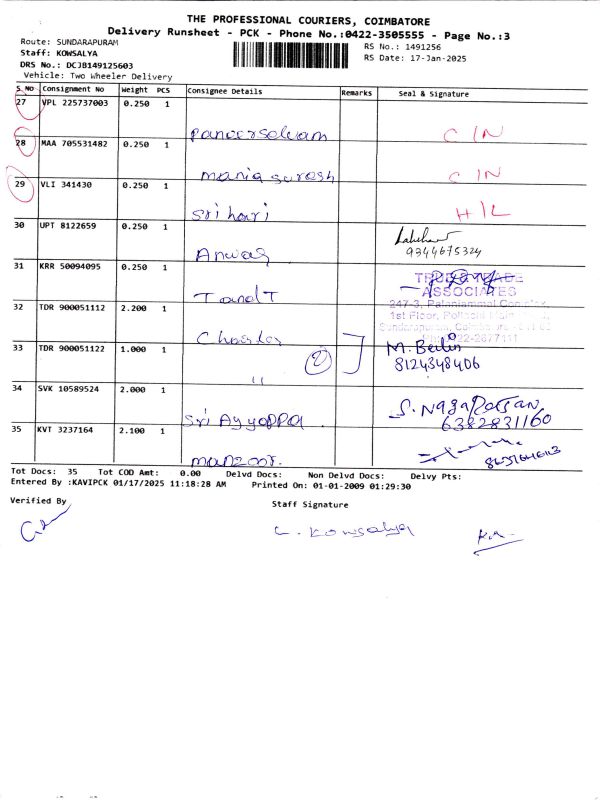 THE PROFESSIONAL COURIERS, COIMBATORE
Delivery Runsheet - PCK - Phone No.:0422-3505555 - Page No.:3
Route: SUNDARAPURAM
RS No.: 1491256
Staff: KOWSALYA
RS Date: 17-Jan-2025
DRS No.: DCJB149125603
Vehicle: Two Wheeler Delivery
S.No Consignment No Weight PCS Consignee Details Remarks Seal & Signature
27 VPL 225737003 0.250 1
Paneerselvam C/N
28 MAA 705531482 0.250 1
maria suresh C/N
29 VLI 341430 0.250 1
Sri hari H/L
30 UPT 8122659 0.250 1
Anwar 9344675324
31 KRR 50094095 0.250 1
T and T
TRUE TRADE
ASSOCIATES
247-3, Palaniammal Complex,
1st Floor, Pollachi Main Road,
32 TDR 900051112 2.200 1
33 TDR 900051122 1.000 1
(2) M. Berlin
" 8124348406
34 SVK 10589524 2.000 1
Sri Ayyappa S. Nagarajan
6382831160
35 KVT 3237164 2.100 1
manzoor.
Tot Docs: 35 Tot COD Amt: 0.00 Delvd Docs: Non Delvd Docs: Delvy Pts:
Entered By :KAVIPCK 01/17/2025 11:18:28 AM Printed On: 01-01-2009 01:29:30
Verified By Staff Signature
C. Kowsalya